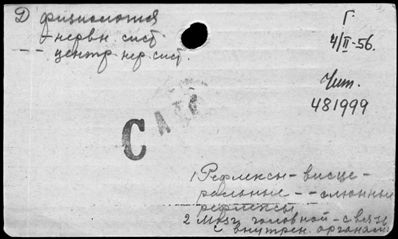 Д физиология
- нервн. сист.
- - - центр. нер. сист.
Г.
4/II-56.
Чит.
481999
С
1 Рефлексы - висце-
ральные - - слюнные
рефлексы
2 Мозг головной - связь
с внутрен. органами